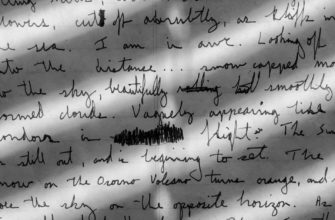 flowers, cut off abruptly, as cliffs in
the sea. I am in awe. Looking off
into the distance.... snow capped mo
to the sky, beautifully smoothly
formed clouds. Vaguely appearing like
condors in flight. The Su
is still out, and is beginning to set. The
snow on the Osorno Volcano turns orange, and
the sky on the opposite horizon. As